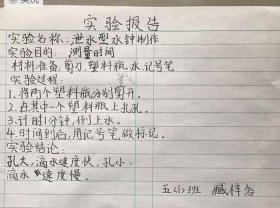 实验报告
实验名称:泄水型水钟制作
实验目的:测量时间
材料准备:剪刀.塑料瓶.水.记号笔
实验过程:
1.将两个塑料瓶分别剪开。
2.在其中一个塑料瓶上扎孔。
3.计时1分钟,倒上水。
4.时间到后,用记号笔做标记。
实验结论:
孔大,滴水速度快;孔小,
滴水速度慢。
五(5)班 臧梓